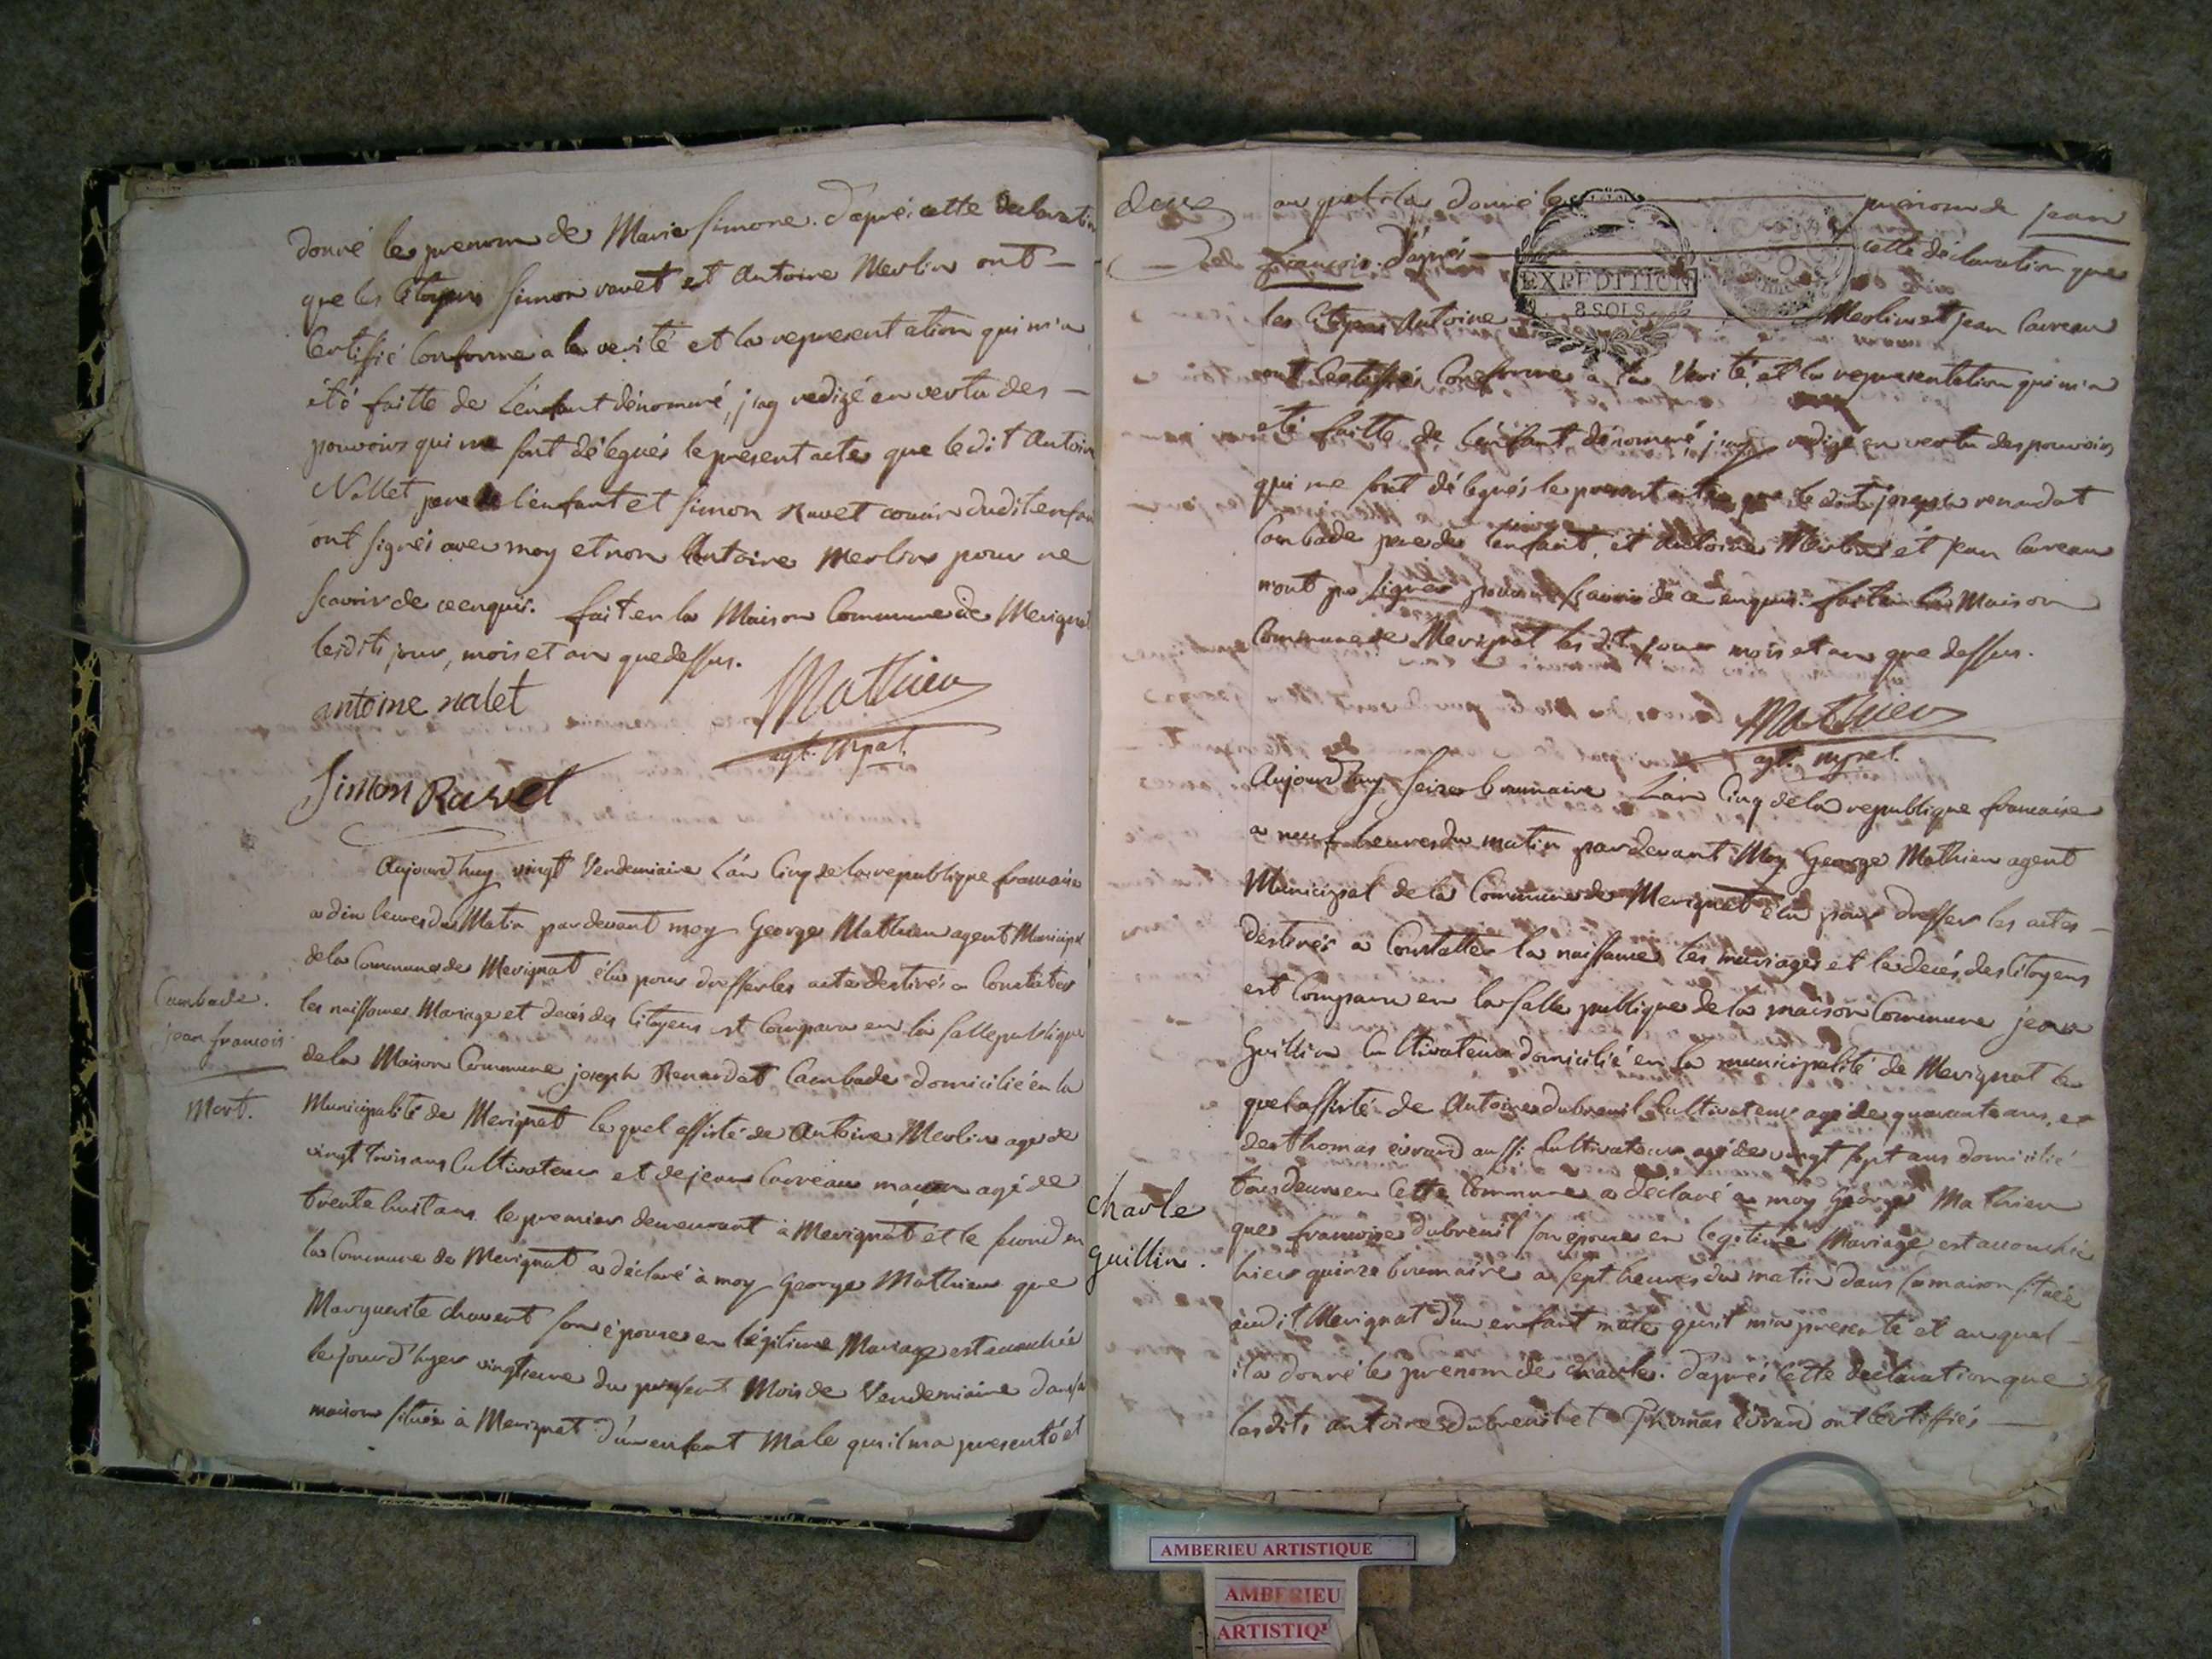 donné le prenom de Marie Simone. d'aprés cette declaration
que les Citoyens Simon ravet et Antoine Merlin ont —
Certiffié Conforme a la verité et la representation qui m'a
été faitte de L'enfant dénommé, j'ay redigé en vertu des —
pouvoirs qui me sont délegués le présent acte que le dit Antoine
Nallet pere de l'enfant et Simon Ravet cousin dudit enfant
ont signés avec moy et non Antoine Merlin pour ne
scavoir de ce enquis. fait en la Maison Commune de Merignat
lesdits jour, mois et an que dessus.
antoine nalet
Mathieu
agt. mpal.
Simon Ravet
Aujourd'huy vingt Vendemiaire L'an Cinq de la republique francaise
a dix heures du Matin pardevant moy George Mathieu agent Municipal
de la Commune de Merignat élu pour dresser les actes destinés a Constater
les naissances Mariage et decés des Citoyens est Comparu en la salle publique
Cambade.
jean francois
Mort.
de la Maison Commune joseph Renardat Cambade domicilié en la
Municipalité de Merignat lequel assisté de Antoine Merlin agé de
vingt trois ans Cultivateur et de jean Carreau macon agé de
trente huit ans le premier demeurant à Merignat et le second en
la Commune de Merignat a déclaré à moy George Mathieu que
Marguerite chavent son épouse en légitime Mariage est accouchée
le jour d'hyer vingtieme du present Mois de Vendemiaire dans sa
maison située à Merignat d'un enfant Male qu'il m'a presenté et
deux
auquel il a donné le prénom de jean
francois. d'aprés cette déclaration que
les Citoyens Antoine Merlin et jean Carreau
EXPEDITION
8 SOLS
ont Certiffiés Conforme a la Verité, et la representation qui m'a
eté faitte de l'enfant dénommé, j'ay redigé en vertu des pouvoirs
qui me sont délegués le present acte que le dit joseph renardat
Cambade pere de l'enfant, et Antoine Merlin et jean Carreau
n'ont pu signer pour ne scavoir de ce enquis. fait en la Maison
Commune de Merignat les dits jour mois et an que dessus.
Mathieu
agt. mpal.
Aujourd'huy seize brumaire L'an Cinq de la republique francaise
a neuf heures du matin pardevant Moy George Mathieu agent
Municipal de la Commune de Merignat élu pour dresser les actes —
destinés a Constatter la naissance les mariages et le decés des Citoyens
est Comparu en la salle publique de la maison Commune jean
Guillin Cultivateur domicilié en la municipalité de Merignat le
quel assisté de Antoine dubreuil Cultivateur agé de quarante ans, et
de thomas évrard aussi Cultivateur agé de vingt sept ans domicilié
charle
guillin.
tous deux en cette Commune a déclaré a moy George Mathieu
que francoise dubreuil son épouse en legitime Mariage est accouchée
hier quinze brumaire a sept heures du matin dans sa maison située
audit Merignat d'un enfant mâle qu'il m'a presenté et auquel —
il a donné le prenom de charle. d'aprés cette declaration que
lesdits antoine dubreuil et Thomas évrard ont Certiffiés —
AMBERIEU ARTISTIQUE
AMBERIEU
ARTISTIQ